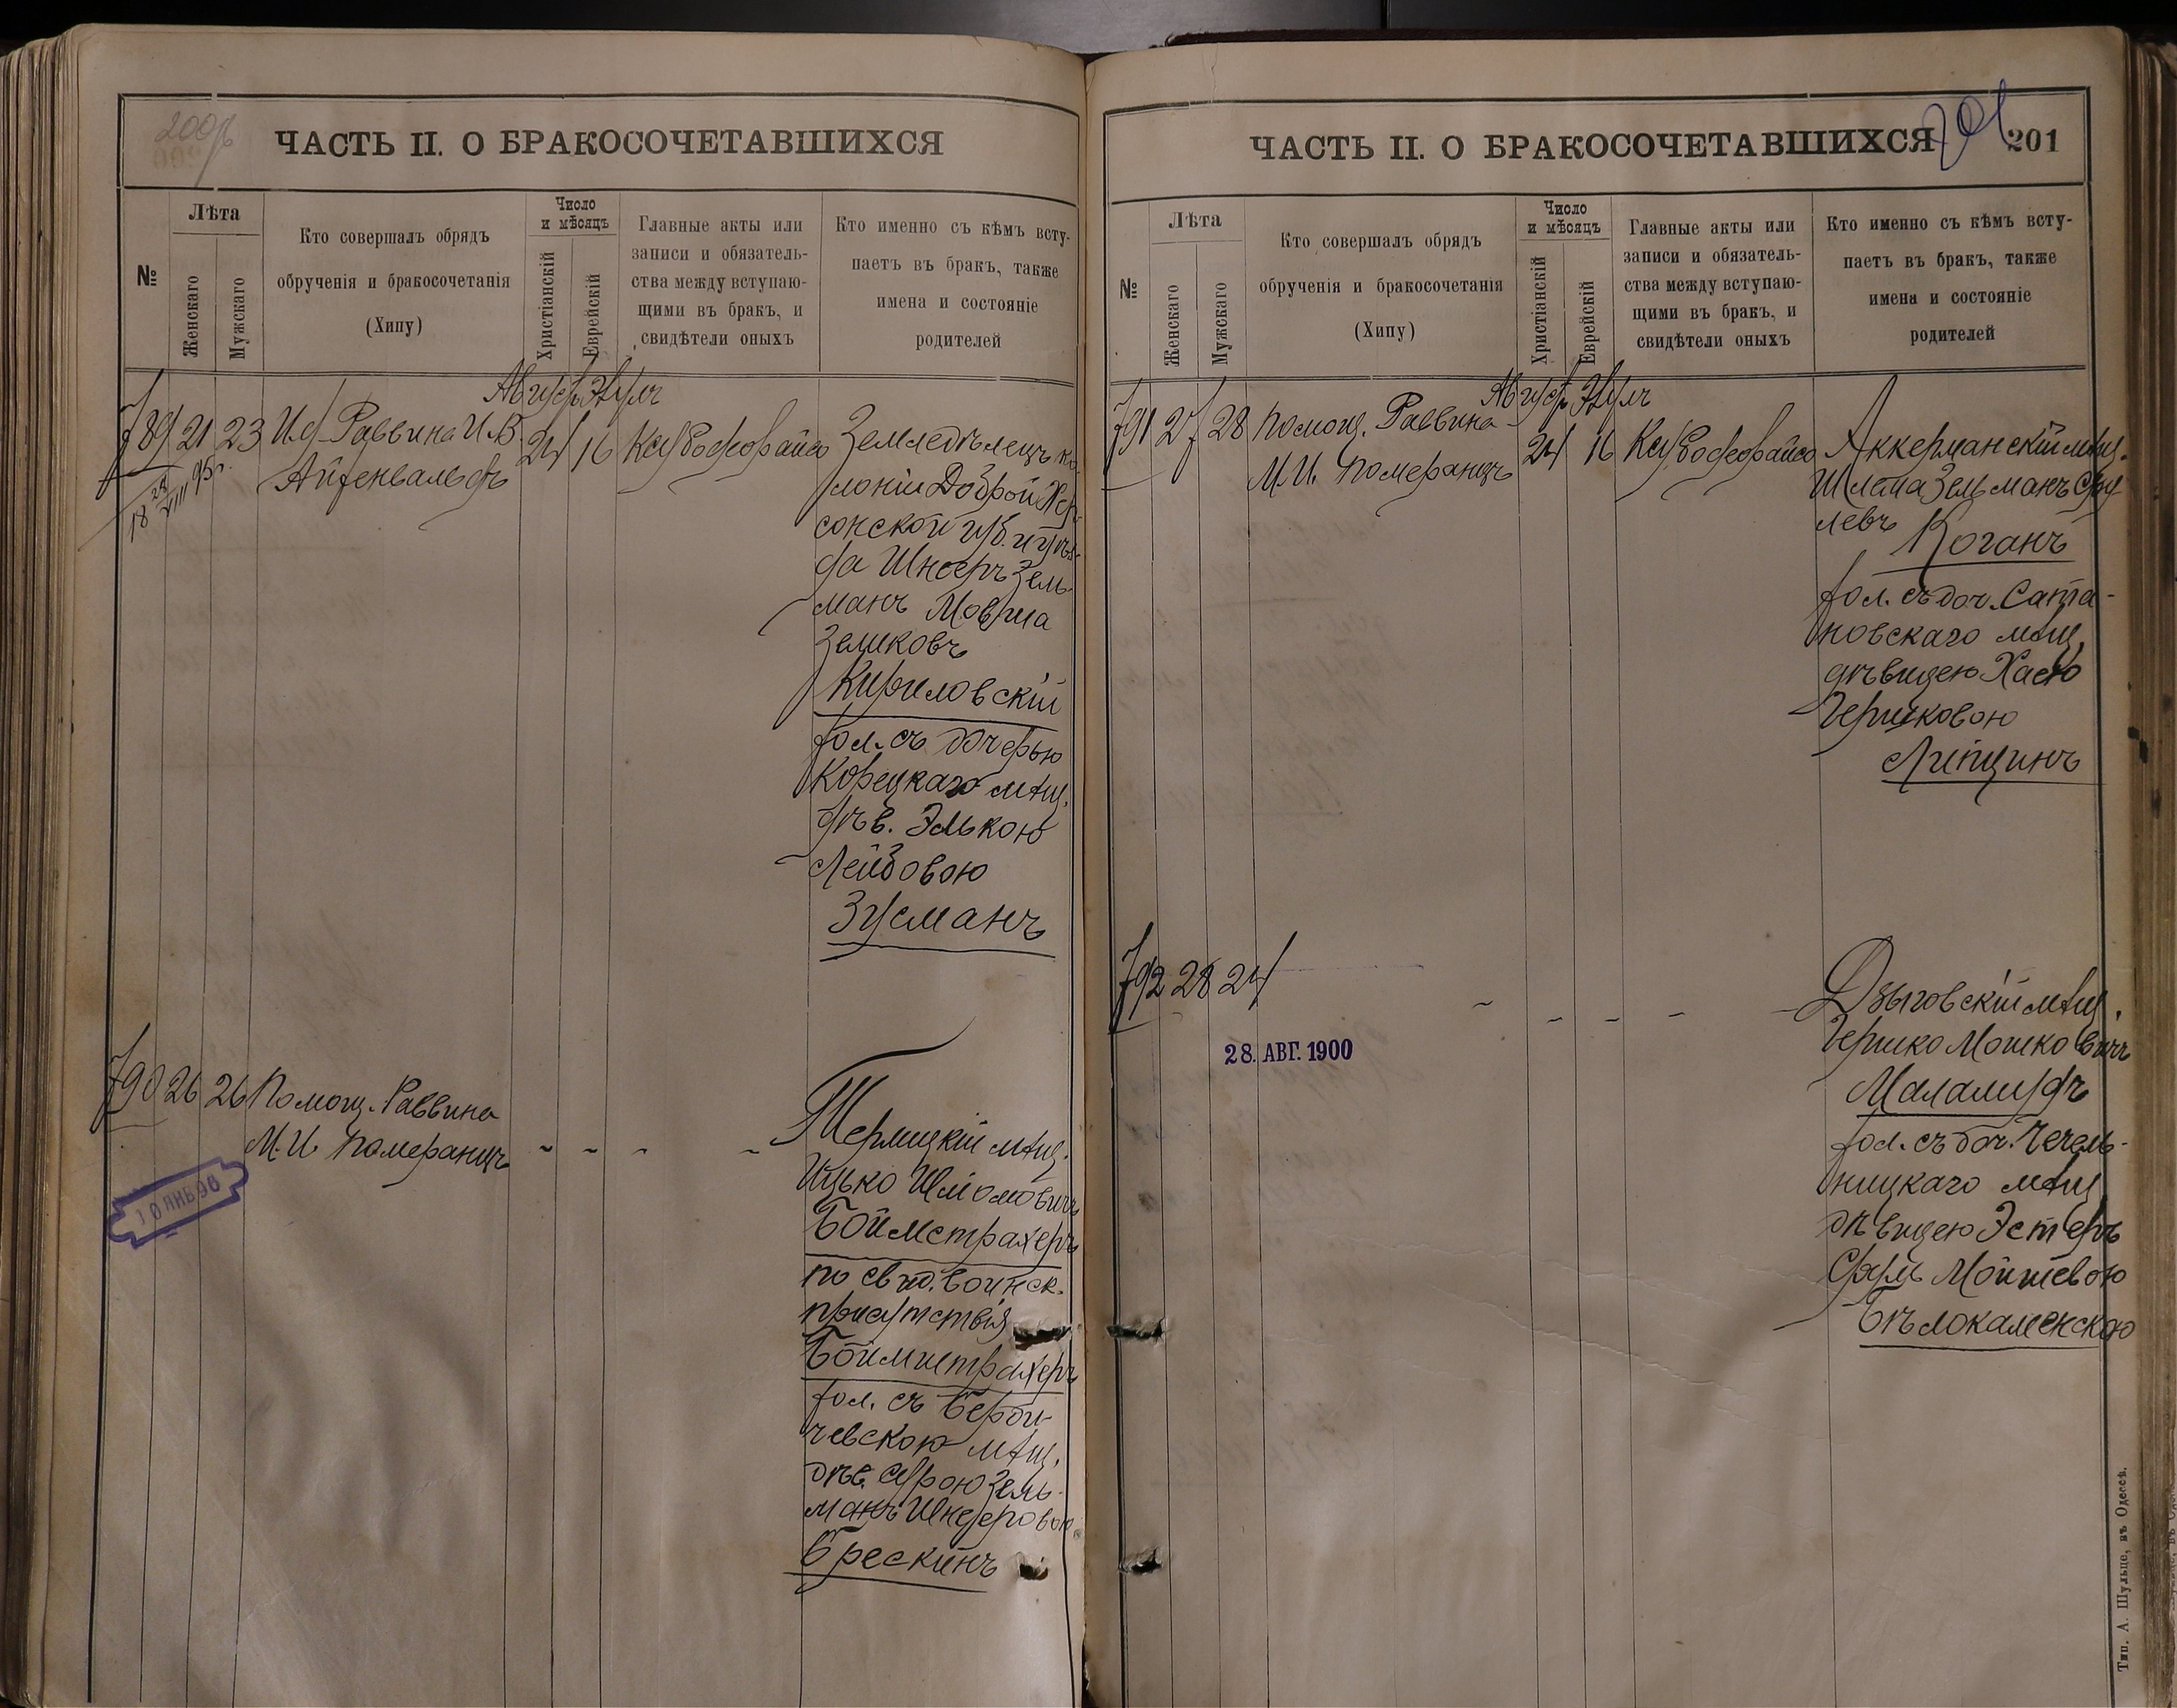 ЧАСТЬ II. О БРАКОСОЧЕТАВШИХСЯ
№
Лѣта
Женскаго
Мужскаго
Кто совершалъ обрядъ
обрученія и бракосочетанія
(Хипу)
Число
и мѣсяцъ
Христіанскій
Еврейскій
Главные акты или
записи и обязатель-
ства между вступаю-
щими въ бракъ, и
свидѣтели оныхъ
Кто именно съ кѣмъ всту-
паетъ въ бракъ, также
имена и состояніе
родителей
789 21 23
Раввина И. В.
Айзенвальдъ
24 16
Земледѣлецъ ко-
лоніи Доброй Хер-
сонской губ. и уѣз-
да Шнееръ Зель-
манъ Мовша
Зеликовъ
Кириловскій
хол. съ дочерью
Корецкаго мѣщ.
дѣв. Элькою
Лейбовою
Зусманъ
790 26 26 Помощ. Раввина
М. И. Померанцъ
мѣщ.
Ицько Шліомовичъ
Боймстрахеръ
по свид. воинск.
присутствія
Боймштрахеръ
хол. съ Берди-
чевскою мѣщ.
дѣв. Сурою Зель-
манъ Шнееровою
Брескинъ
ЧАСТЬ II. О БРАКОСОЧЕТАВШИХСЯ
201
201
№
Лѣта
Женскаго
Мужскаго
Кто совершалъ обрядъ
обрученія и бракосочетанія
(Хипу)
Число
и мѣсяцъ
Христіанскій
Еврейскій
Главные акты или
записи и обязатель-
ства между вступаю-
щими въ бракъ, и
свидѣтели оныхъ
Кто именно съ кѣмъ всту-
паетъ въ бракъ, также
имена и состояніе
родителей
791 27 28 Помощ. Раввина
М. И. Померанцъ
24 16
Аккерманскій мѣщ.
Шлема Зельманъ Сру-
левъ
Коганъ
хол. съ доч. Сата-
новскаго мѣщ.
дѣвицею Хаею
Гершковою
Липцинъ
792 28 24
28. АВГ. 1900
мѣщ.
Гершко Мошковичъ
Маламудъ
хол. съ доч. Чечель-
ницкаго мѣщ.
дѣвицею Эстеръ
Сурь Мойшевою
Бѣлокаменскою
Тип. А. Шульце, въ Одессѣ.